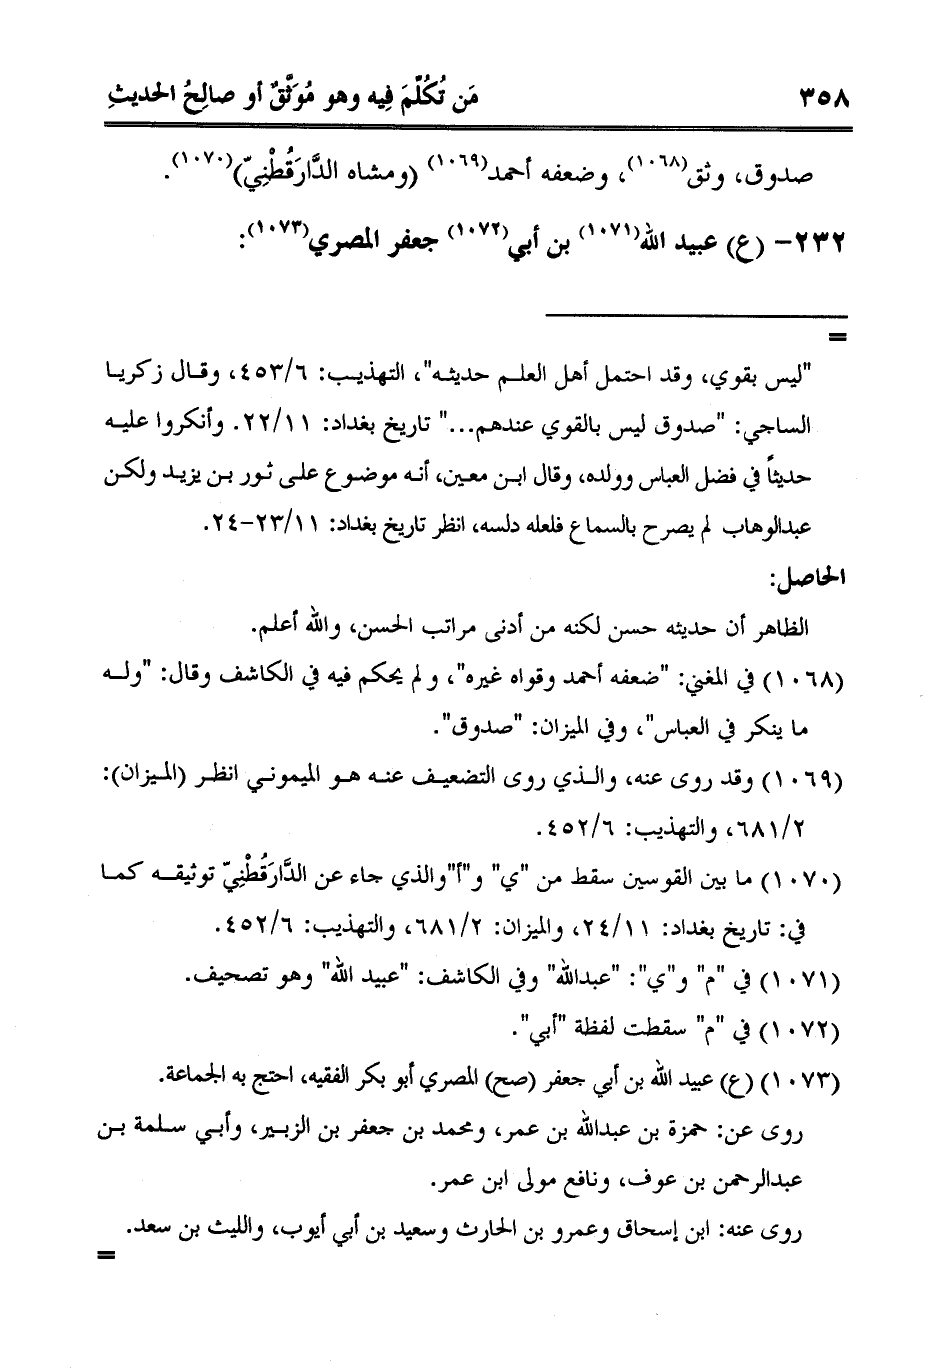 ٣٥٨ مَن تُكُلِّمَ فِيه وهو مُوَثَّقٌ أو صالِحُ الحديثِ
صدوق، وثق(١٠٦٨)، وضعفه أحمد(١٠٦٩) (ومشاه الدَّارَقُطْنِيّ)(١٠٧٠).
٢٣٢- (ع) عبيد الله(١٠٧١) بن أبي(١٠٧٢) جعفر المصري(١٠٧٣):
=
"ليس بقوي، وقد احتمل أهل العلم حديثه"، التهذيب: ٤٥٣/٦، وقال زكريا
الساجي: "صدوق ليس بالقوي عندهم..." تاريخ بغداد: ٢٢/١١. وأنكروا عليه
حديثاً في فضل العباس وولده، وقال ابن معين، أنه موضوع على ثور بن يزيد ولكن
عبدالوهاب لم يصرح بالسماع فلعله دلسه، انظر تاريخ بغداد: ٢٣/١١-٢٤.
الحاصل:
الظاهر أن حديثه حسن لكنه من أدنى مراتب الحسن، والله أعلم.
(١٠٦٨) في المغني: "ضعفه أحمد وقواه غيره"، ولم يحكم فيه في الكاشف وقال: "وله
ما ينكر في العباس"، وفي الميزان: "صدوق".
(١٠٦٩) وقد روى عنه، والذي روى التضعيف عنه هو الميموني انظر (الميزان):
٦٨١/٢، والتهذيب: ٤٥٢/٦.
(١٠٧٠) ما بين القوسين سقط من "ي" و"أ"والذي جاء عن الدَّارَقُطْنِيّ توثيقه كما
في: تاريخ بغداد: ٢٤/١١، والميزان: ٦٨١/٢، والتهذيب: ٤٥٢/٦.
(١٠٧١) في "م" و"ي": "عبدالله" وفي الكاشف: "عبيد الله" وهو تصحيف.
(١٠٧٢) في "م" سقطت لفظة "أبي".
(١٠٧٣) (ع) عبيد الله بن أبي جعفر (صح) المصري أبو بكر الفقيه، احتج به الجماعة.
روى عن: حمزة بن عبدالله بن عمر، ومحمد بن جعفر بن الزبير، وأبي سلمة بن
عبدالرحمن بن عوف، ونافع مولى ابن عمر.
روى عنه: ابن إسحاق وعمرو بن الحارث وسعيد بن أبي أيوب، والليث بن سعد.
=